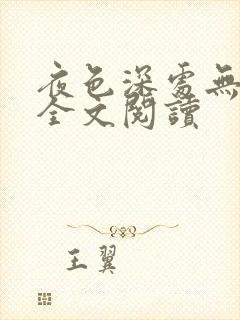 夜色深處無
全文閱讀
王翼